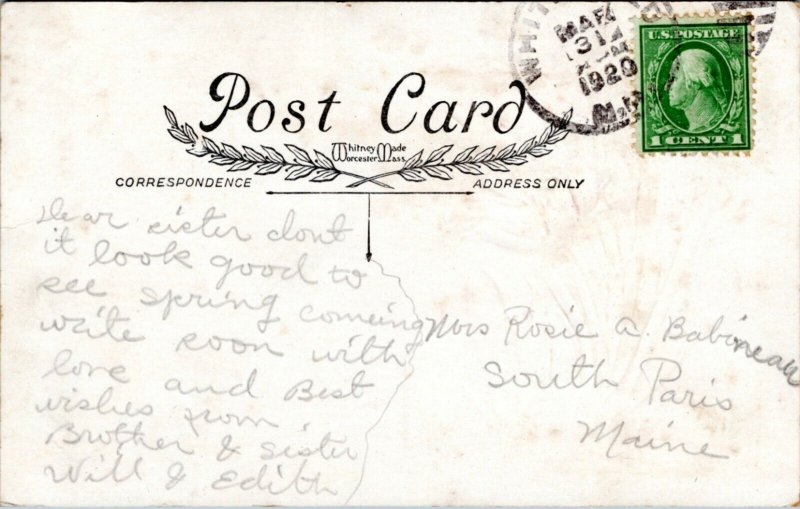 WHIT
MAR
31
1920
N.H.
U.S. POSTAGE
1 CENT 1
Post Card
Whitney Made
Worcester Mass.
CORRESPONDENCE
ADDRESS ONLY
Dear sister dont
it look good to
see spring comeing
write soon with
love and Best
wishes from
Brother & sister
Will & Edith
Mrs Rosie A. Babineau
South Paris
Maine